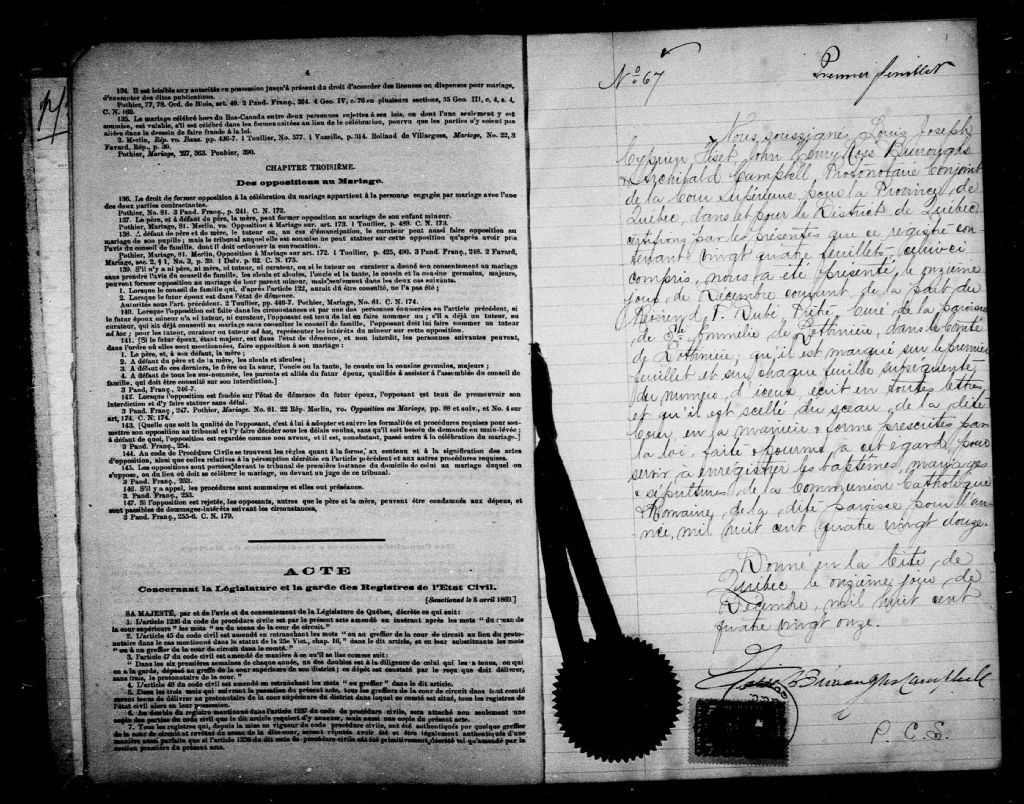 4
134. Il est loisible aux autorités en possession jusqu'à présent du droit d'accorder des licences ou dispenses pour mariage,
d'exempter des dites publications.
Pothier, 77, 78. Ord. de Blois, art. 40. 2 Pand. Franç., 324. 4 Geo. IV, c. 76 en plusieurs sections, 35 Geo. III, c. 4, s. 4.
C. N. 169.
135. Le mariage célébré hors du Bas-Canada entre deux personnes sujettes à ses lois, ou dont l'une seulement y est
soumise, est valable, s'il est célébré dans les formes usitées au lieu de la célébration, pourvu que les parties n'y soient pas
allées dans le dessein de faire fraude à la loi.
2. Merlin, Rép. vo. Bans. pp. 436-7. 1 Toullier, No. 577. 1 Vazeille, p. 314. Rolland de Villargues, Mariage, No. 22, 3
Favard, Rép., p. 30.
Pothier, Mariage, 327, 363. Poubier, 390.
CHAPITRE TROISIÈME.
Des oppositions au Mariage.
136. Le droit de former opposition à la célébration du mariage appartient à la personne engagée par mariage avec l'une
des deux parties contractantes.
Pothier, No. 81. 3 Pand. Franç., p. 241. C. N. 172.
137. Le père, et à défaut du père, la mère, peut former opposition au mariage de son enfant mineur.
Pothier, Mariage, 81. Merlin, vo. Opposition à Mariage, sur art. 173. 1 Toupier, p. 489. C. N. 174.
138. A défaut de père et de mère, le tuteur ou, au cas d'émancipation, le curateur peut aussi faire opposition au
mariage de son pupille; mais le tribunal auquel elle est soumise ne peut statuer sur cette opposition qu'après avoir pris
l'avis du conseil de famille, dont il doit ordonner la convocation.
Pothier, Mariage, 81. Merlin, Opposition à Mariage sur art. 172. 1 Toullier, p. 425, 490. 3 Pand. Franç., 248. 2 Favard,
Mariage, sec. 2, § 1, No. 3, p. 39. 1 Delv. p. 62. C. N. 175.
139. S'il n'y a ni père, ni mère, ni tuteur, ni curateur, ou si le tuteur ou curateur a donné son consentement au mariage
sans prendre l'avis du conseil de famille, les aïeuls et aïeules, l'oncle et la tante, le cousin et la cousine germains, majeurs,
peuvent former opposition au mariage de leur parent mineur, mais seulement dans les deux cas suivants.
1. Lorsque le conseil de famille qui, d'après l'article 122, aurait dû être consulté, ne l'a pas été;
2. Lorsque le futur époux est dans l'état de démence.
Autorités sous l'art. précédent, 2 Toullier, pp. 446-7. Pothier, Mariage, No. 81. C. N. 174.
140. Lorsque l'opposition est faite dans les circonstances et par une des personnes énumérées en l'article précédent, si
le futur époux mineur n'a ni tuteur, ni curateur, l'opposant est tenu de lui en faire nommer un; s'il a déjà un tuteur, ou
curateur, qui ait déjà consenti au mariage sans consulter le conseil de famille, l'opposant doit lui faire nommer un tuteur
ad hoc; pour les tuteur, curateur ou tuteur ad hoc, représenter les intérêts du mineur sur cette opposition.
141. [Si le futur époux, étant majeur, est dans l'état de démence, et non interdit, les personnes suivantes peuvent,
dans l'ordre où elles sont mentionnées, faire opposition à son mariage:
1. Le père, et, à son défaut, la mère;
2. A défaut du père et de la mère, les aïeuls et aïeules;
3. A défaut de ces derniers, le frère ou la sœur, l'oncle ou la tante, le cousin ou la cousine germains, majeurs;
4. A défaut de tous les sus-nommés, les parents et alliés du futur époux, qualifiés à assister à l'assemblée du conseil de
famille, qui doit être consulté sur son interdiction.]
3 Pand. Franç., 246-7.
142. Lorsque l'opposition est fondée sur l'état de démence du futur époux, l'opposant est tenu de promouvoir son
interdiction et d'y faire statuer sans délai.
3 Pand. Franç., 247. Pothier, Mariage, No. 81. 22 Rép. Merlin, vo. Opposition au Mariage, pp. 88 et suiv., et No. 4 sur
art, 174. C. N. 174.
143. [Quelle que soit la qualité de l'opposant, c'est à lui à adopter et suivre les formalités et procédures requises pour sou-
mettre son opposition au tribunal et l'y faire décider sous les délais voulus, sans qu'il soit besoin de demande en main-levée;
à défaut de quoi, l'opposition est regardée comme non avenue, et il est, nonobstant, passé outre à la célébration du mariage.]
3 Pand. Franç., 254.
144. Au code de Procédure Civile se trouvent les règles quant à la forme, au contenu et à la signification des actes
d'opposition, ainsi que celles relatives à la péremption décrétée en l'article précédent et aux autres procédures requises.
145. Les oppositions sont portées devant le tribunal de première instance du domicile de celui au mariage duquel on
s'oppose, ou du lieu où doit se célébrer le mariage, ou devant un juge de ce tribunal.
3 Pand. Franç., 253.
146. S'il y a appel, les procédures sont sommaires et elles ont préséance.
3. Pand. Franç., 253.
147. Si l'opposition est rejetée, les opposants, autres que le père et la mère, peuvent être condamnés aux dépens, et
sont passibles de dommages-intérêts suivant les circonstances,
3 Pand. Franç., 255-6. C. N. 179.
ACTE
Concernant la Législature et la garde des Registres de l'Etat Civil.
[Sanctionné le 5 avril 1869.]
SA MAJESTÉ, par et de l'avis et du consentement de la Législature de Québec, décrète ce qui suit:
1. L'article 1236 du code de procédure civile est par le présent acte amendé en insérant après les mots " du sceau de la
cour supérieure " les mots " ou du sceau de la cour de circuit."
2. L'article 45 du code civil est amendé en retranchant les mots " ou au greffier de la cour de circuit au lieu du proto-
notaire dans le cas mentionné dans le statut de la 25e Vict., chap. 16," dans le dit article, et en leur substituant les mots
" ou à un greffier de la cour de circuit dans le comté."
3. l'article 47 du code civil est amendé de manière à ce qu'il se lise comme suit;
" Dans les six premières semaines de chaque année, un des doubles est à la diligence de celui qui les a tenus, ou qui
en a la garde, déposé au greffe de la cour supérieure de son district; ce dépôt est constaté par le reçu que doit délivrer,
sans frais, le protonotaire de la cour."
4. L'article 48 du code civil est amendé en retranchant les mots " ou greffier " dans le dit acte.
5. Dans les trois mois qui suivront la passation du présent acte, tous les greffiers de la cour de circuit dans tout comté
seront tenus de délivrer au protonotaire de la cour supérieure du district dans lequel ce comté est situé, tous les registres de
l'état civil alors en leur possession.
6. Au double du registre mentionné dans l'article 1237 du code de procédure civile, sera attaché non seulement une
copie des parties du code civil que le dit article requiert d'y annexer, mais aussi une copie du présent acte.
7. Tous les registres qui, depuis la mise en vigueur du code de procédure civile, ont été authentiqués par quelque greffier
de la cour de circuit et revêtus du sceau de la dite cour, seront réputés avoir été et être légalement authentiqués d'une
manière aussi parfaite que si l'article 1236 du dit code de procédure civile eût été primitivement décrété tel qu'amendé par la
section première du présent acte.
No 67
Premier feuillet
Nous soussignés, Louis Joseph
Cyprien Fiset, John Henry Ross Burroughs
& Archibald Campbell, Protonotaire Conjoint
de la Cour Supérieure, pour la Province de
Québec, dans et pour le District de Québec
certifions par les présentes que ce registre con-
tenant vingt quatre feuillets, celui-ci
compris, nous a été présenté, le onzième
jour, de Décembre courant, de la part du
Révérend F. Dubé, Prêtre, Curé de la paroisse
de Ste Emmélie de Lotbinière, dans le Comté
de Lotbinière; qu'il est marqué sur le premier
feuillet et sur chaque feuille subséquente
du numéro d'iceux écrit en toutes lettres,
et qu'il est scellé du sceau de la dite
Cour en la manière & forme prescrites par
la loi, faite & fournie, à cet égard, pour
servir à enregistrer les baptêmes, mariages
& sépultures, de la Communion Catholique
& Romaine, de la dite paroisse pour l'an-
née, mil huit cent quatre vingt douze.
Donné en la Cité, de
Québec le onzième jour, de
Décembre, mil huit cent
quatre vingt onze.
Fiset Burroughs Campbell
P. C. S.